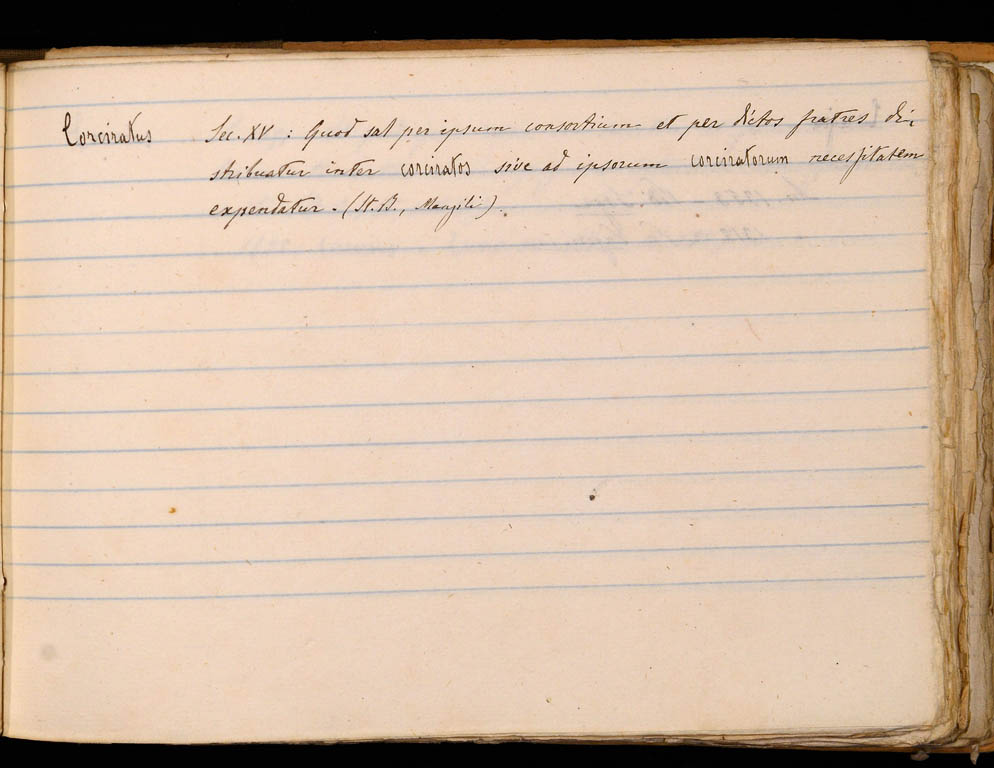 Corciratus Sec. XV : Quod sal per ipsum consortium et per dictos fratres di-
stribuatur inter corciratos sive ad ipsorum corciratorum necessitatem
expendatur. (St. B., Mangili).